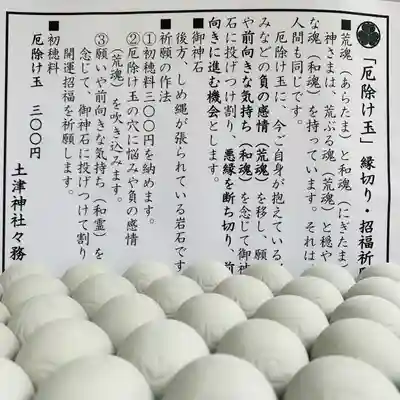 「厄除け玉」縁切り・招福祈
■荒魂（あらたま）と和魂（にぎたま）
神さまは、荒ぶる魂（荒魂）と穏や
な魂（和魂）を持っています。それは
人間も同じです。
厄除け玉に、今ご自身が抱えている
みなどの負の感情（荒魂）を移し、願
や前向きな気持ち（和魂）を念じて御神
石に投げつけ割り、悪縁を断ち切り、前
向きに進む機会とします。
■御神石
後方、しめ縄が張られている岩石です
■祈願の作法
①初穂料三〇〇円を納めます。
②厄除け玉の穴に悩みや負の感情
（荒魂）を吹き込みます。
③願いや前向きな気持ち（和霊）を
念じて、御神石に投げつけて割り
開運招福を祈願します。
■初穂料
厄除け玉　三〇〇円
土津神社々務